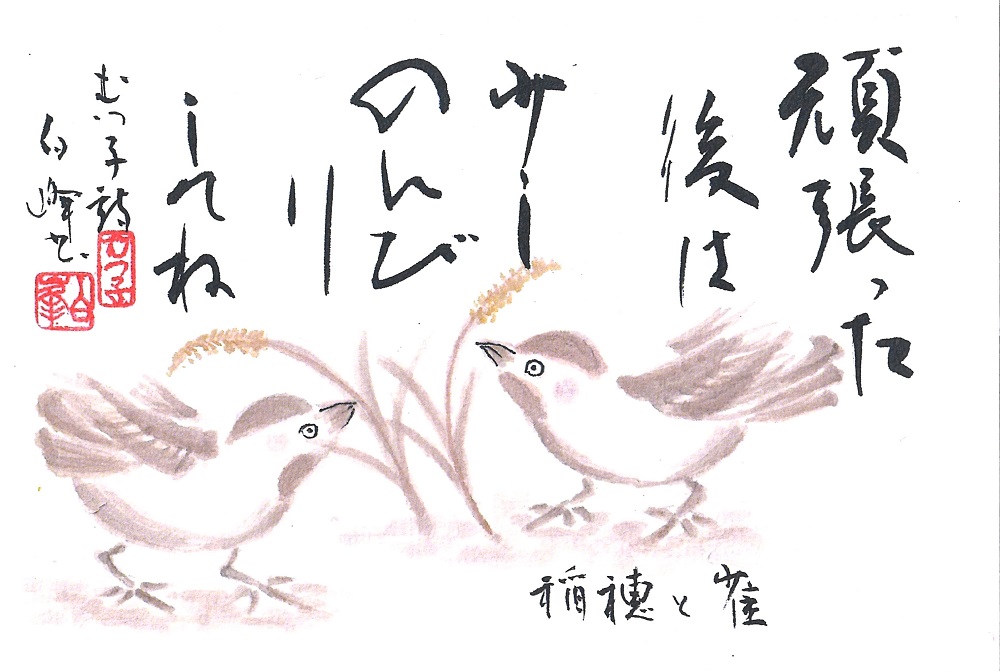 頑張った
後は
少し
のんび
り
してね
むつ子詩
白峰書
稲穂と雀